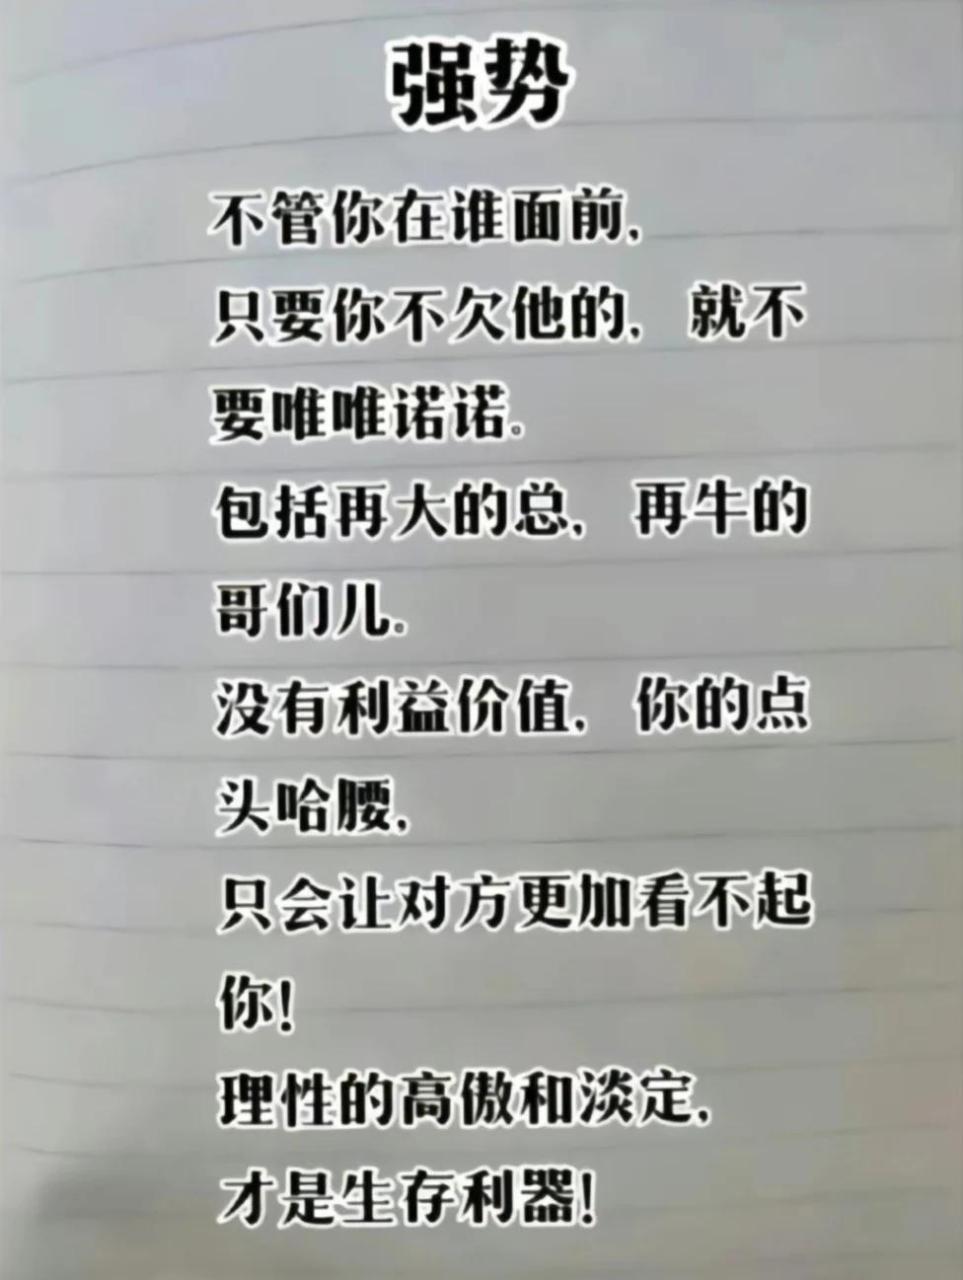 强势
不管你在谁面前,
只要你不欠他的, 就不
要唯唯诺诺。
包括再大的总, 再牛的
哥们儿。
没有利益价值, 你的点
头哈腰,
只会让对方更加看不起
你!
理性的高傲和淡定,
才是生存利器!